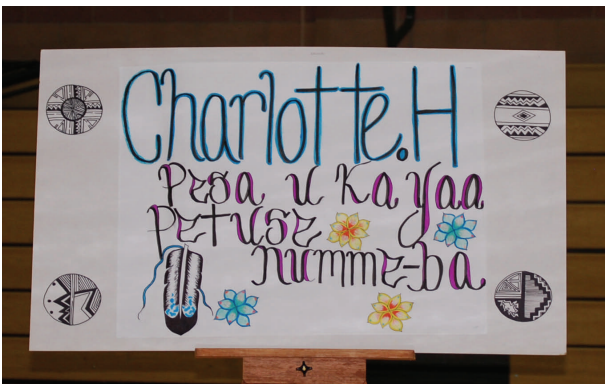 Charlotte.H
Pesa u Ka yaa
Petuse
numme-ba